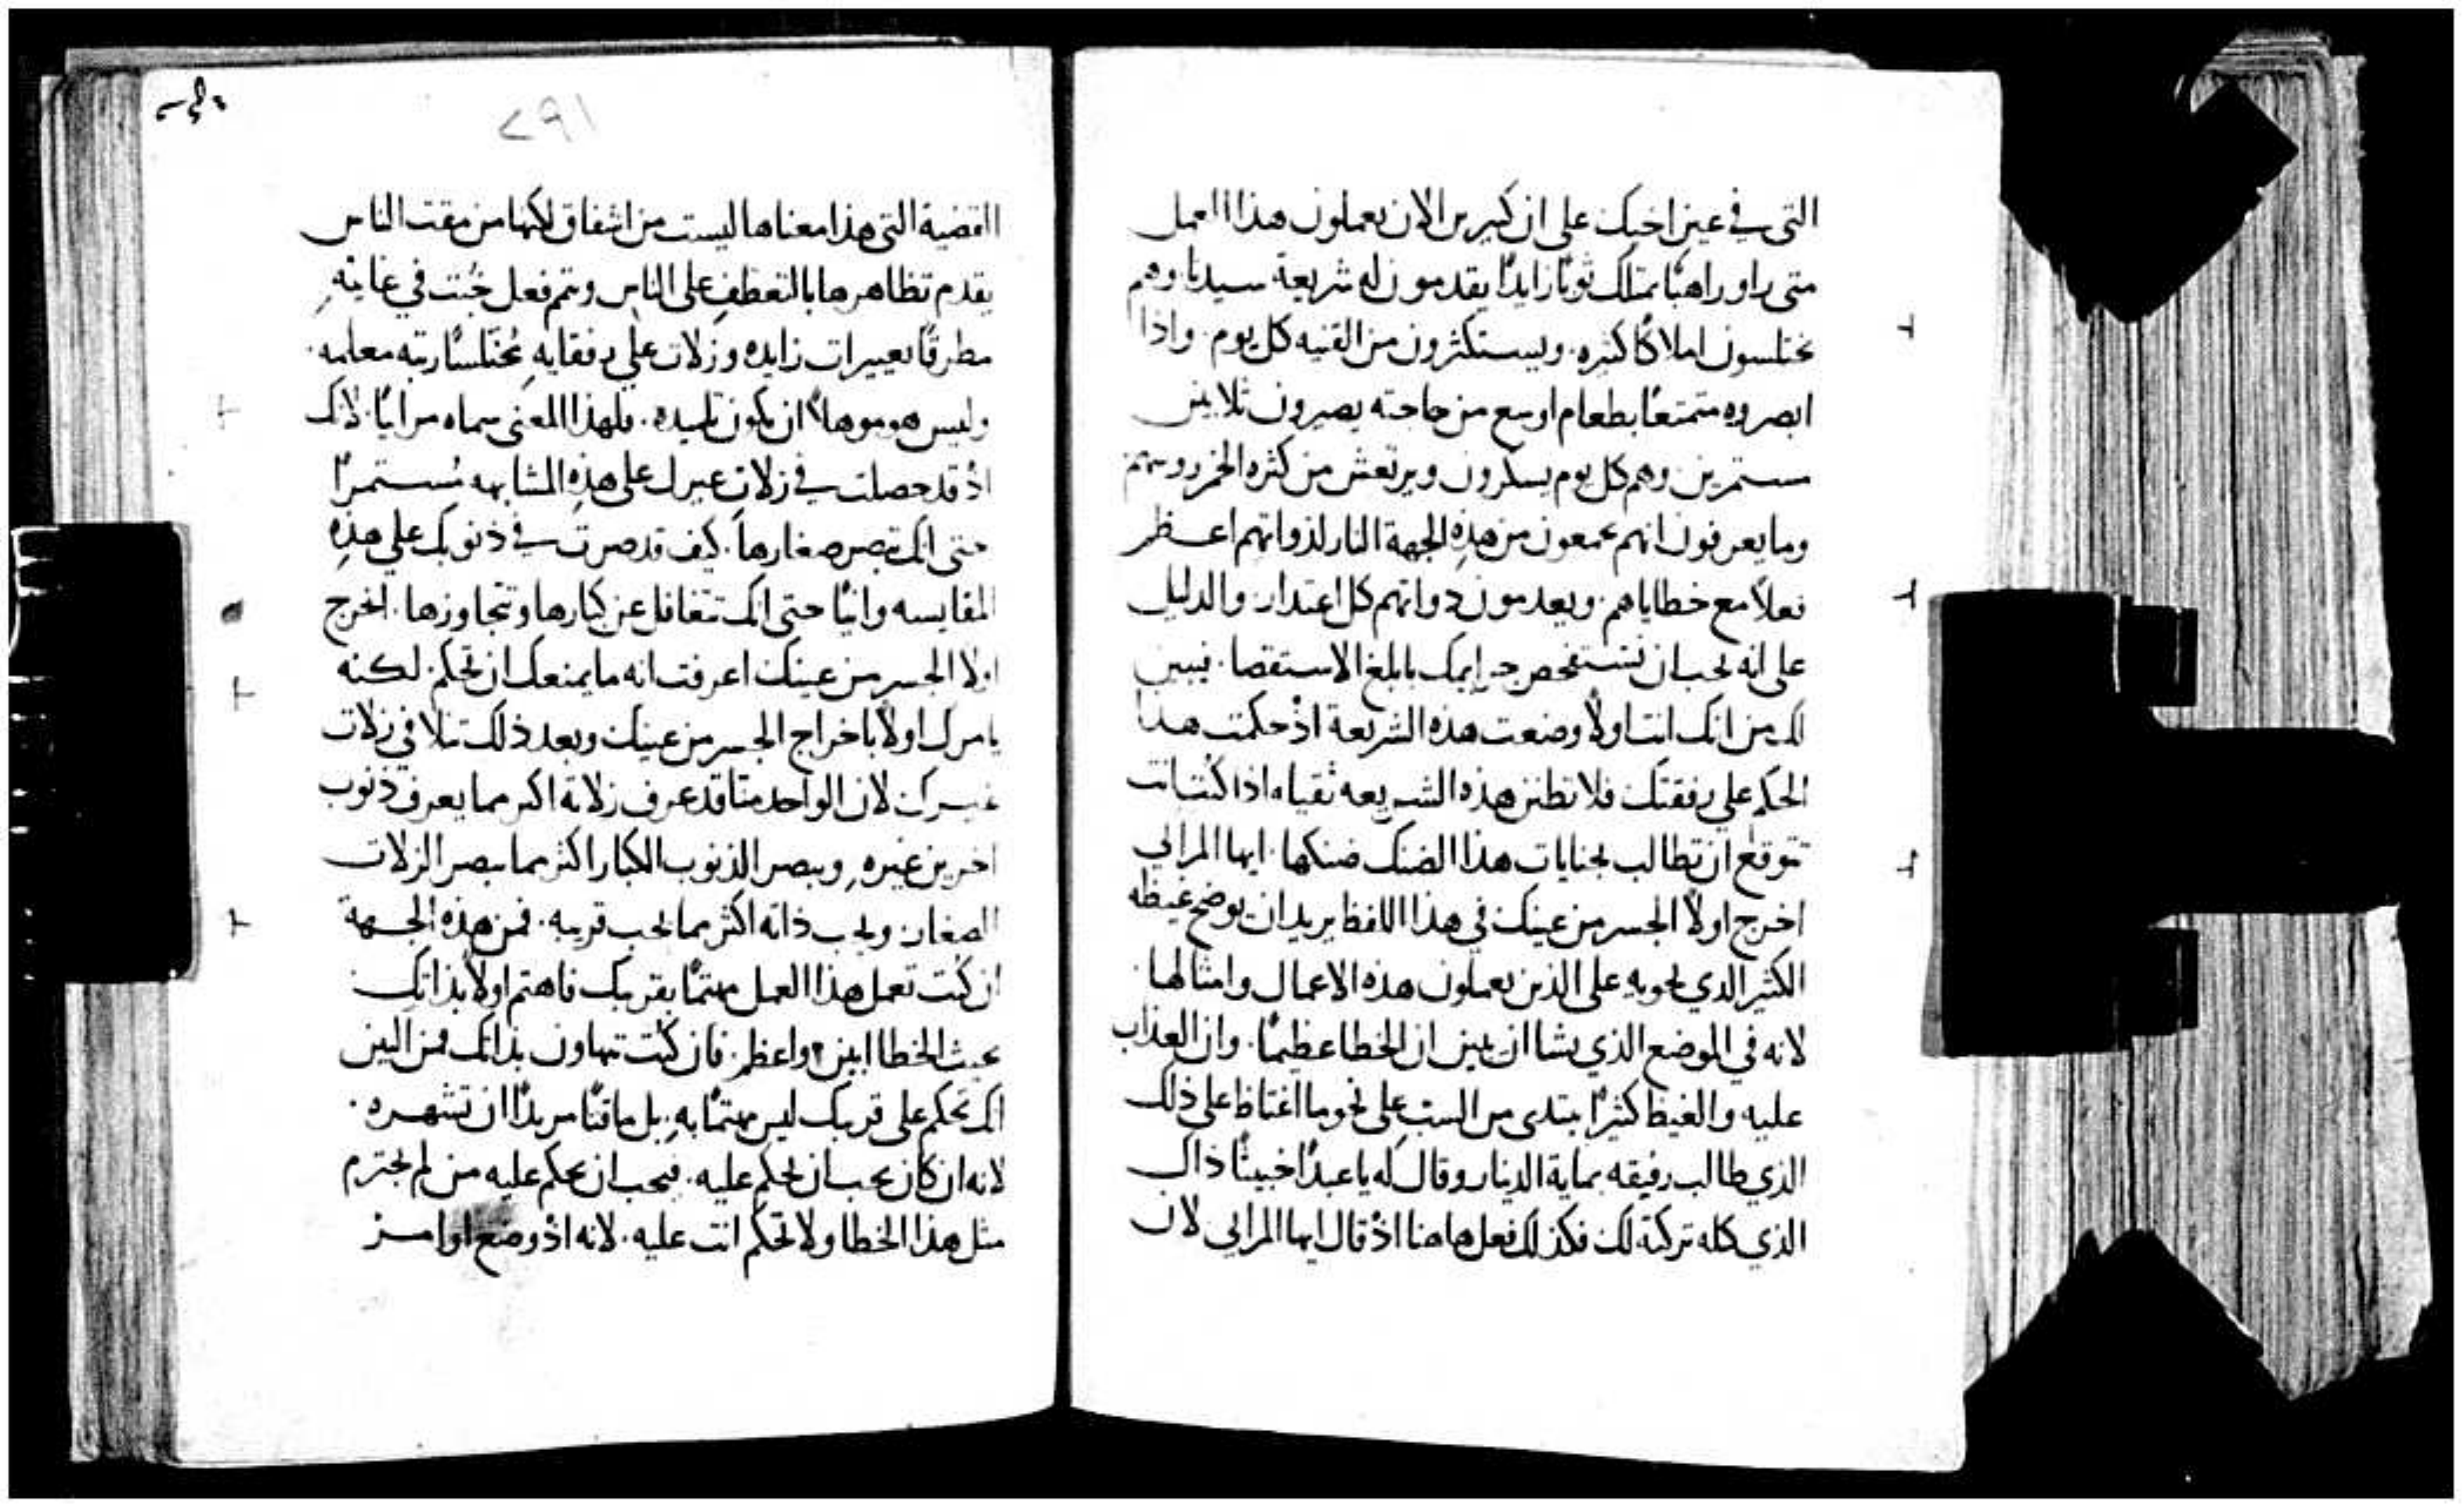 التي في عين اخيك على ان كثيرين الان يعملون هذا العمل
متى راو راهبًا يمتلك ثوبًا زايدًا يقدمون له شريعة سيدنا وهم
يختلسون املاكًا كثيره. ويستكثرون من القنيه كل يوم. واذا
ابصروه متمتعًا بطعام اوسع من حاجته يصيرون ثلابين
مستمرين وهم كل يوم يسكرون ويرتعش من كثرة الخمر روسهم
وما يعرفون انهم يجمعون من هذه الجهة النار لذواتهم اعظم
فعلاً مع خطاياهم. ويعدمون ذواتهم كل اعتدار. والدليل
على انه يجب ان تستفحص جرايمك بابلغ الاستقصا. فيبين
لك من انك انت اولاً وضعت هذه الشريعة اذ حكمت هذا
الحكم على رفقتك فلا تظنن هذه الشريعه ثقيله اذا كنت انت
تتوقع ان تطالب بجنايات هذا الضنك ضنكها. ايها المرائي
اخرج اولاً الجسر من عينك في هذا اللفظ يريد ان يوضح غيظه
الكثير الدي يحويه على الذين يعملون هذه الاعمال وامثالها.
لانه في الموضع الذي يشا ان يبين ان الخطا عظيمًا. وان العذاب
عليه والغيظ كثيرًا يبتدى من السب على نحو ما اغتاظ على ذلك
الذي طالب رفيقه بماية الدينار وقال له يا عبدًا خبيثًا ذاك
الذي كله تركته لك فكذلك فعل هاهنا اذ قال ايها المرائي لان
١٩٢
القضية التي هذا معناها ليست من اشفاق لكنها من مقت الناس
يقدم تظاهرها بالتعطف على الناس ويتم فعل خبث في غايته
مطرقًا تعييرات زايده وزلات على رفقايه مختلسًا رتبه معلمه.
وليس هو موهلاً ان يكون تلميده. فلهذا المعنى سماه مراييًا. لانك
اذ قد حصلت في زلات غيرك على هذه المشابهه مستمرًا
حتى انك تبصر صغارها. كيف قد صرت في ذنوبك على هذه
المقايسه وانيًا حتى انك تتغافل عن كبارها وتتجاوزها. اخرج
اولا الجسر من عينك اعرفت انه ما يمنعك ان تحكم. لكنه
يامرك اولاً باخراج الجسر من عينك وبعد ذلك تتلافي زلات
غيرك لان الواحد منا قد عرف زلاته اكثر مما يعرف ذنوب
اخرين غيره. ويبصر الذنوب الكبار اكثر مما يبصر الزلات
الصغار. ويحب ذاته اكثر مما يحب قريبه. فمن هذه الجهة
ان كنت تعمل هذا العمل مهتمًا بقريبك فاهتم اولاً بذاتك
حيث الخطا ابين واعظم. فان كنت تتهاون بذاتك فمن البين
انك تحكم على قريبك ليس مهتمًا به. بل ماقتًا مريدًا ان تشهره.
لانه ان كان يجب ان يحكم عليه. فيجب ان يحكم عليه من لم يجترم
مثل هذا الخطا ولا تحكم انت عليه. لانه اذ وضع اوامر